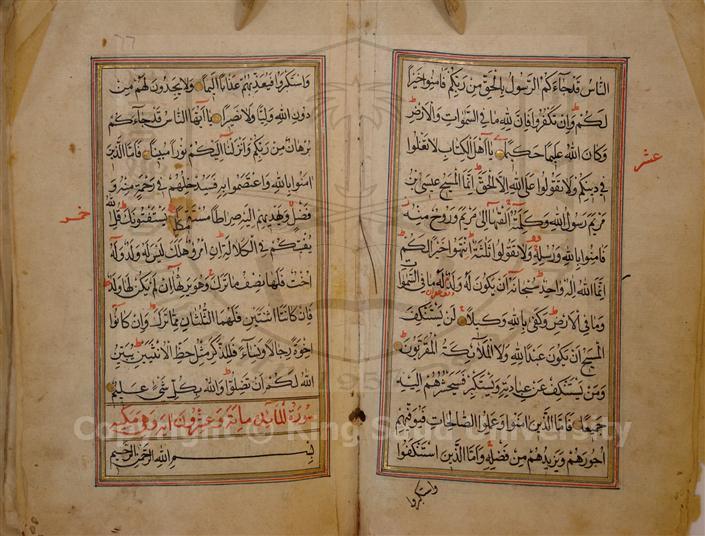 الناس قد جاءكم الرسول بالحق من ربكم فامنوا خيرا
لكم وان تكفروا فان لله ما في السموات والارض
وكان الله عليما حكيما يا اهل الكتاب لا تغلوا
في دينكم ولا تقولوا على الله الا الحق انما المسيح عيسى بن
مريم رسول الله وكلمته القيها الى مريم وروح منه
فامنوا بالله ورسله ولا تقولوا ثلثة انتهوا خيرا لكم
انما الله اله واحد سبحانه ان يكون له ولد له ما في السموات
وما في الارض وكفى بالله وكيلا لن يستنكف
المسيح ان يكون عبدا لله ولا الملائكة المقربون
ومن يستنكف عن عبادته ويستكبر فسيحشرهم اليه
جميعا فاما الذين امنوا وعملوا الصالحات فيوفيهم
اجورهم ويزيدهم من فضله واما الذين استنكفوا
واستكبروا
عشر
واستكبروا فيعذبهم عذابا اليما ولا يجدون لهم من
دون الله وليا ولا نصيرا يا ايها الناس قد جاءكم
برهان من ربكم وانزلنا اليكم نورا مبينا فاما الذين
امنوا بالله واعتصموا به فسيدخلهم في رحمة منه و
فضل ويهديهم اليه صراطا مستقيما يستفتونك قل الله
يفتيكم في الكلالة ان امرؤ هلك ليس له ولد وله
اخت فلها نصف ما ترك وهو يرثها ان لم يكن لها ولد
فان كانتا اثنتين فلهما الثلثان مما ترك وان كانوا
اخوة رجالا ونساء فللذكر مثل حظ الانثيين يبين
الله لكم ان تضلوا والله بكل شيء عليم
سورة المائدة مائة وعشرون اية وهي مدنية
بسم الله الرحمن الرحيم
Copyright © King Saud University
1957